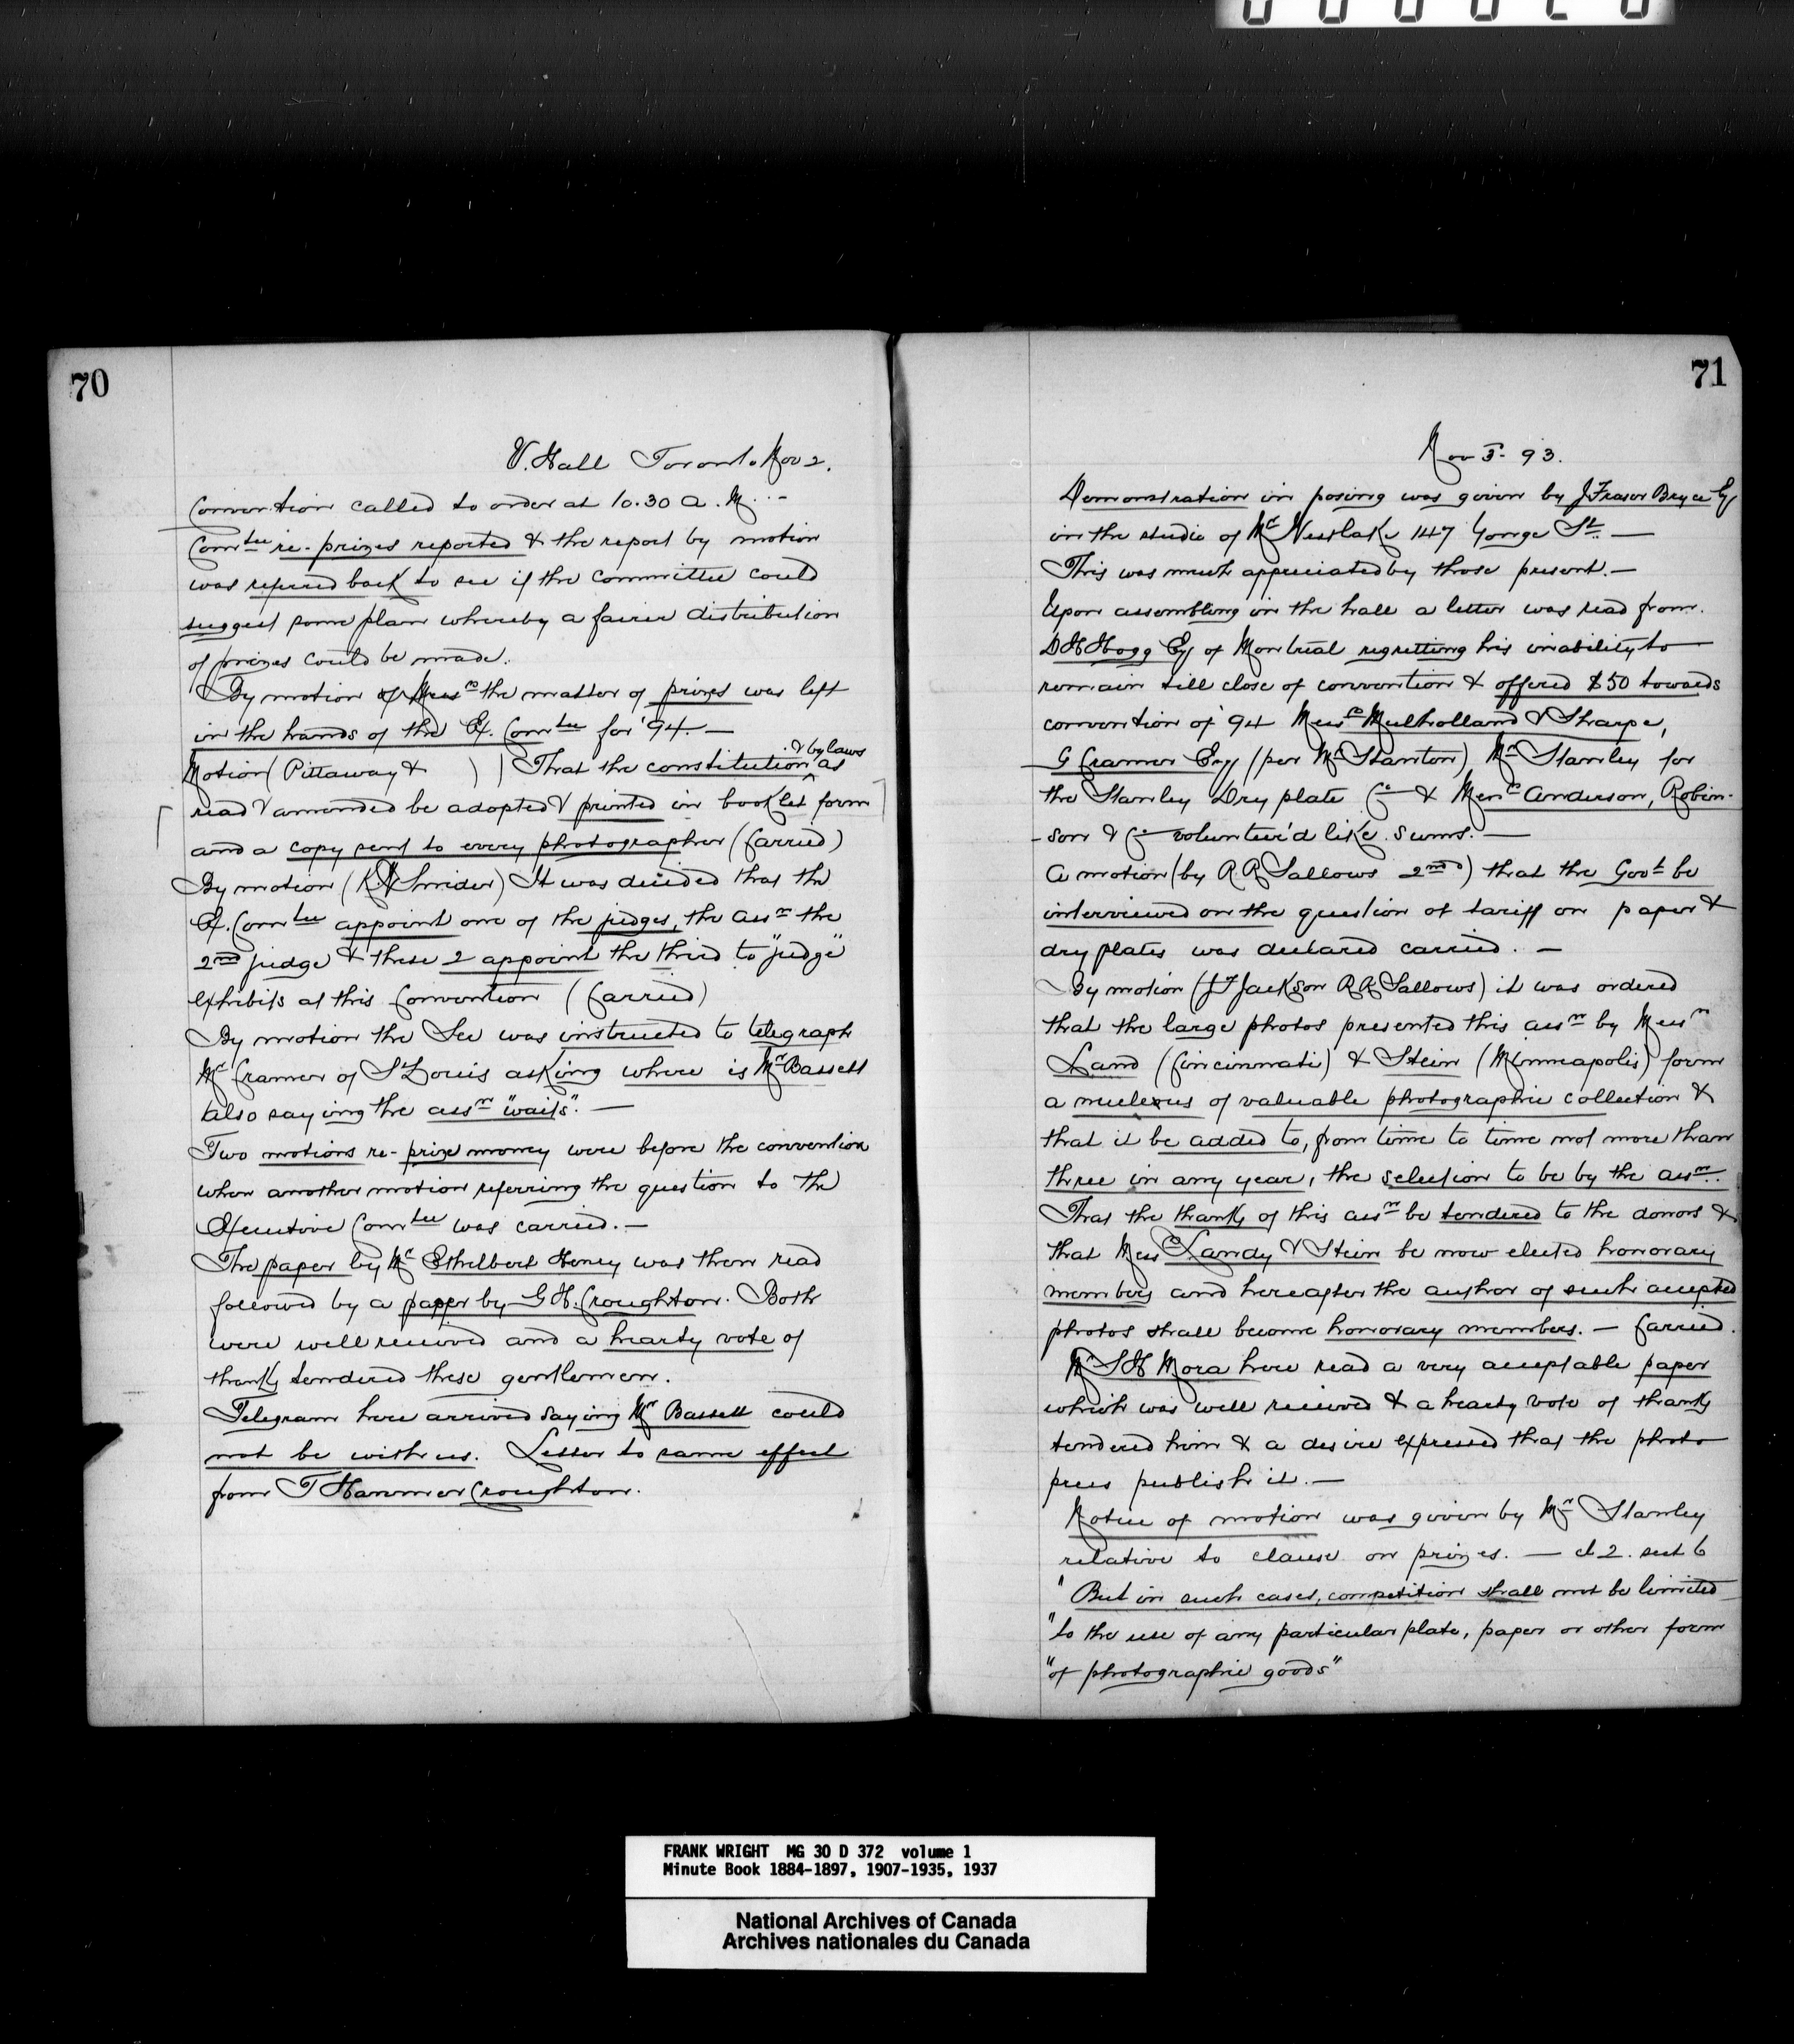 70
V. Hall Toronto Nov 2.
Convention called to order at 10.30 A. M. -
Comtee re-prizes reported & the report by motion
was referred back to see if the committee could
suggest some plan whereby a fairer distribution
of prizes could be made.
By motion of Messrs the matter of prizes was left
in the hands of the Ex. Comtee for '94. —
Motion (Pittaway & ) That the constitution & bylaws as
read & amended be adopted & printed in booklet form
and a copy sent to every photographer (Carried)
By motion ( Snider) It was decided that the
Ex. Comtee appoint one of the judges, the assn the
2nd judge & these 2 appoint the third to "judge"
exhibits at this Convention (Carried)
By motion the Sec was instructed to telegraph
Mr Cramer of St Louis asking where is Mr Bassett
also saying the assn "waits". —
Two motions re-prize money were before the convention
when another motion referring the question to the
Executive Comtee was carried. —
The paper by Mr Ethelbert Henry was then read
followed by a paper by G H. Croughton. Both
were well received and a hearty vote of
thanks tendered these gentlemen.
Telegram here arrived saying Mr Bassett could
not be with us. Letter to same effect
from T Hammer Croughton.
71
Nov 3- 93.
Demonstration in posing was given by J Fraser Bryce Esq
in the studio of Mr Westlake 147 Yonge St. —
This was much appreciated by those present. —
Upon assembling in the hall a letter was read from
D H Hogg Esq of Montreal regretting his inability to
remain till close of convention & offered $50 towards
convention of '94 Messrs Mulholland & Sharpe,
G Cramer Esq (per Mr Stanton) Mr Stanley for
the Stanley Dry plate Co & Messrs Anderson, Robin-
-son & Co volunteer'd like sums. —
A motion (by R R Sallows 2nd) that the Govt be
interviewed on the question of tariff on paper &
dry plates was declared carried. —
By motion (J Jackson R R Sallows) it was ordered
that the large photos presented this assn by Messrs
Land (Cincinnati) & Stein (Minneapolis) form
a nucleus of valuable photographic collection &
that it be added to, from time to time not more than
three in any year, the selection to be by the assn.
That the thanks of this assn be tendered to the donors &
that Messrs Landy & Stein be now elected honorary
members and hereafter the author of such accepted
photos shall become honorary members. — Carried.
Mr S H Mora here read a very acceptable paper
which was well received & a hearty vote of thanks
tendered him & a desire expressed that the photo
press publish it. —
Notice of motion was given by Mr Stanley
relative to clause on prizes. — cl 2. sect 6
"But in such cases, competition shall not be limited
"to the use of any particular plate, paper or other form
"of photographic goods"
FRANK WRIGHT MG 30 D 372 volume 1
Minute Book 1884-1897, 1907-1935, 1937
National Archives of Canada
Archives nationales du Canada